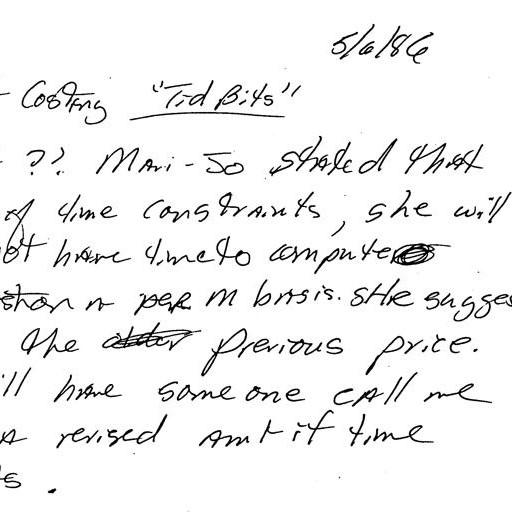 5/6/86
Costing "Tid Bits"
?? Mari-Jo stated that
of time constraints, she will
ot have time to compute
per M basis. She sugges
the previous price.
ll have someone call me
a revised amt if time
ts.